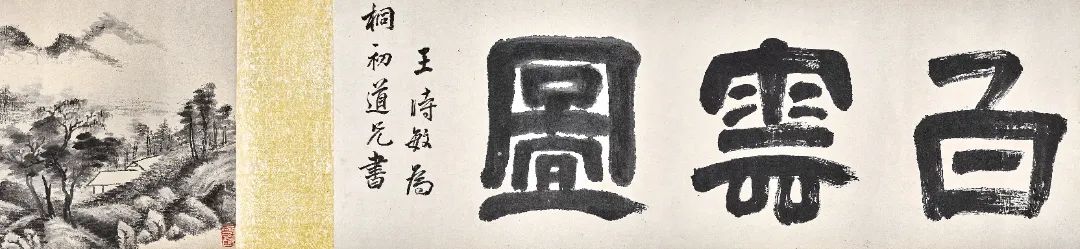 雲圖
王時敏為
桐初道兄書